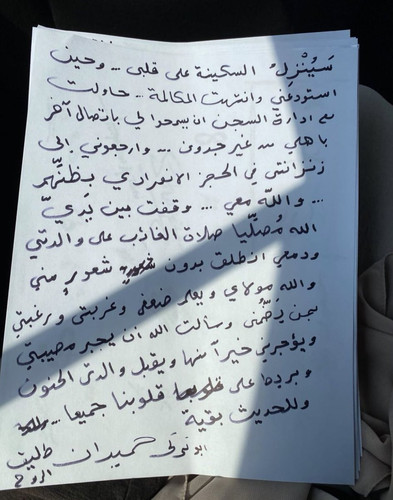 سَيُنْزِلُ السكينة على قلبي ... وحين
استودعني وانتهت المكالمة ... حاولت
مع ادارة السجن ان يسمحوا لي باتصال آخر
باهلي من غير جدوى ... وارجعوني الى
زنزانتي في الحجز الانفرادي بظنّهم
... واللّه معي ... وقفت بين يَديّ
الله مُصلّيا صلاة الغائب على والدتي
ودمعي انطلق بدون شعورٍ مني
والله مولاي ويعلم ضعفي وغربتي ورغبتي
بمن يَضُمّني وسألت الله ان يجبر مصيبتي
ويؤجرني خيرآ منها ويقبل والدتي الحنون
ويربط على قلوبنا جميعا ...
وللحديث بقية
ابو تركي حميدان
طليق الروح